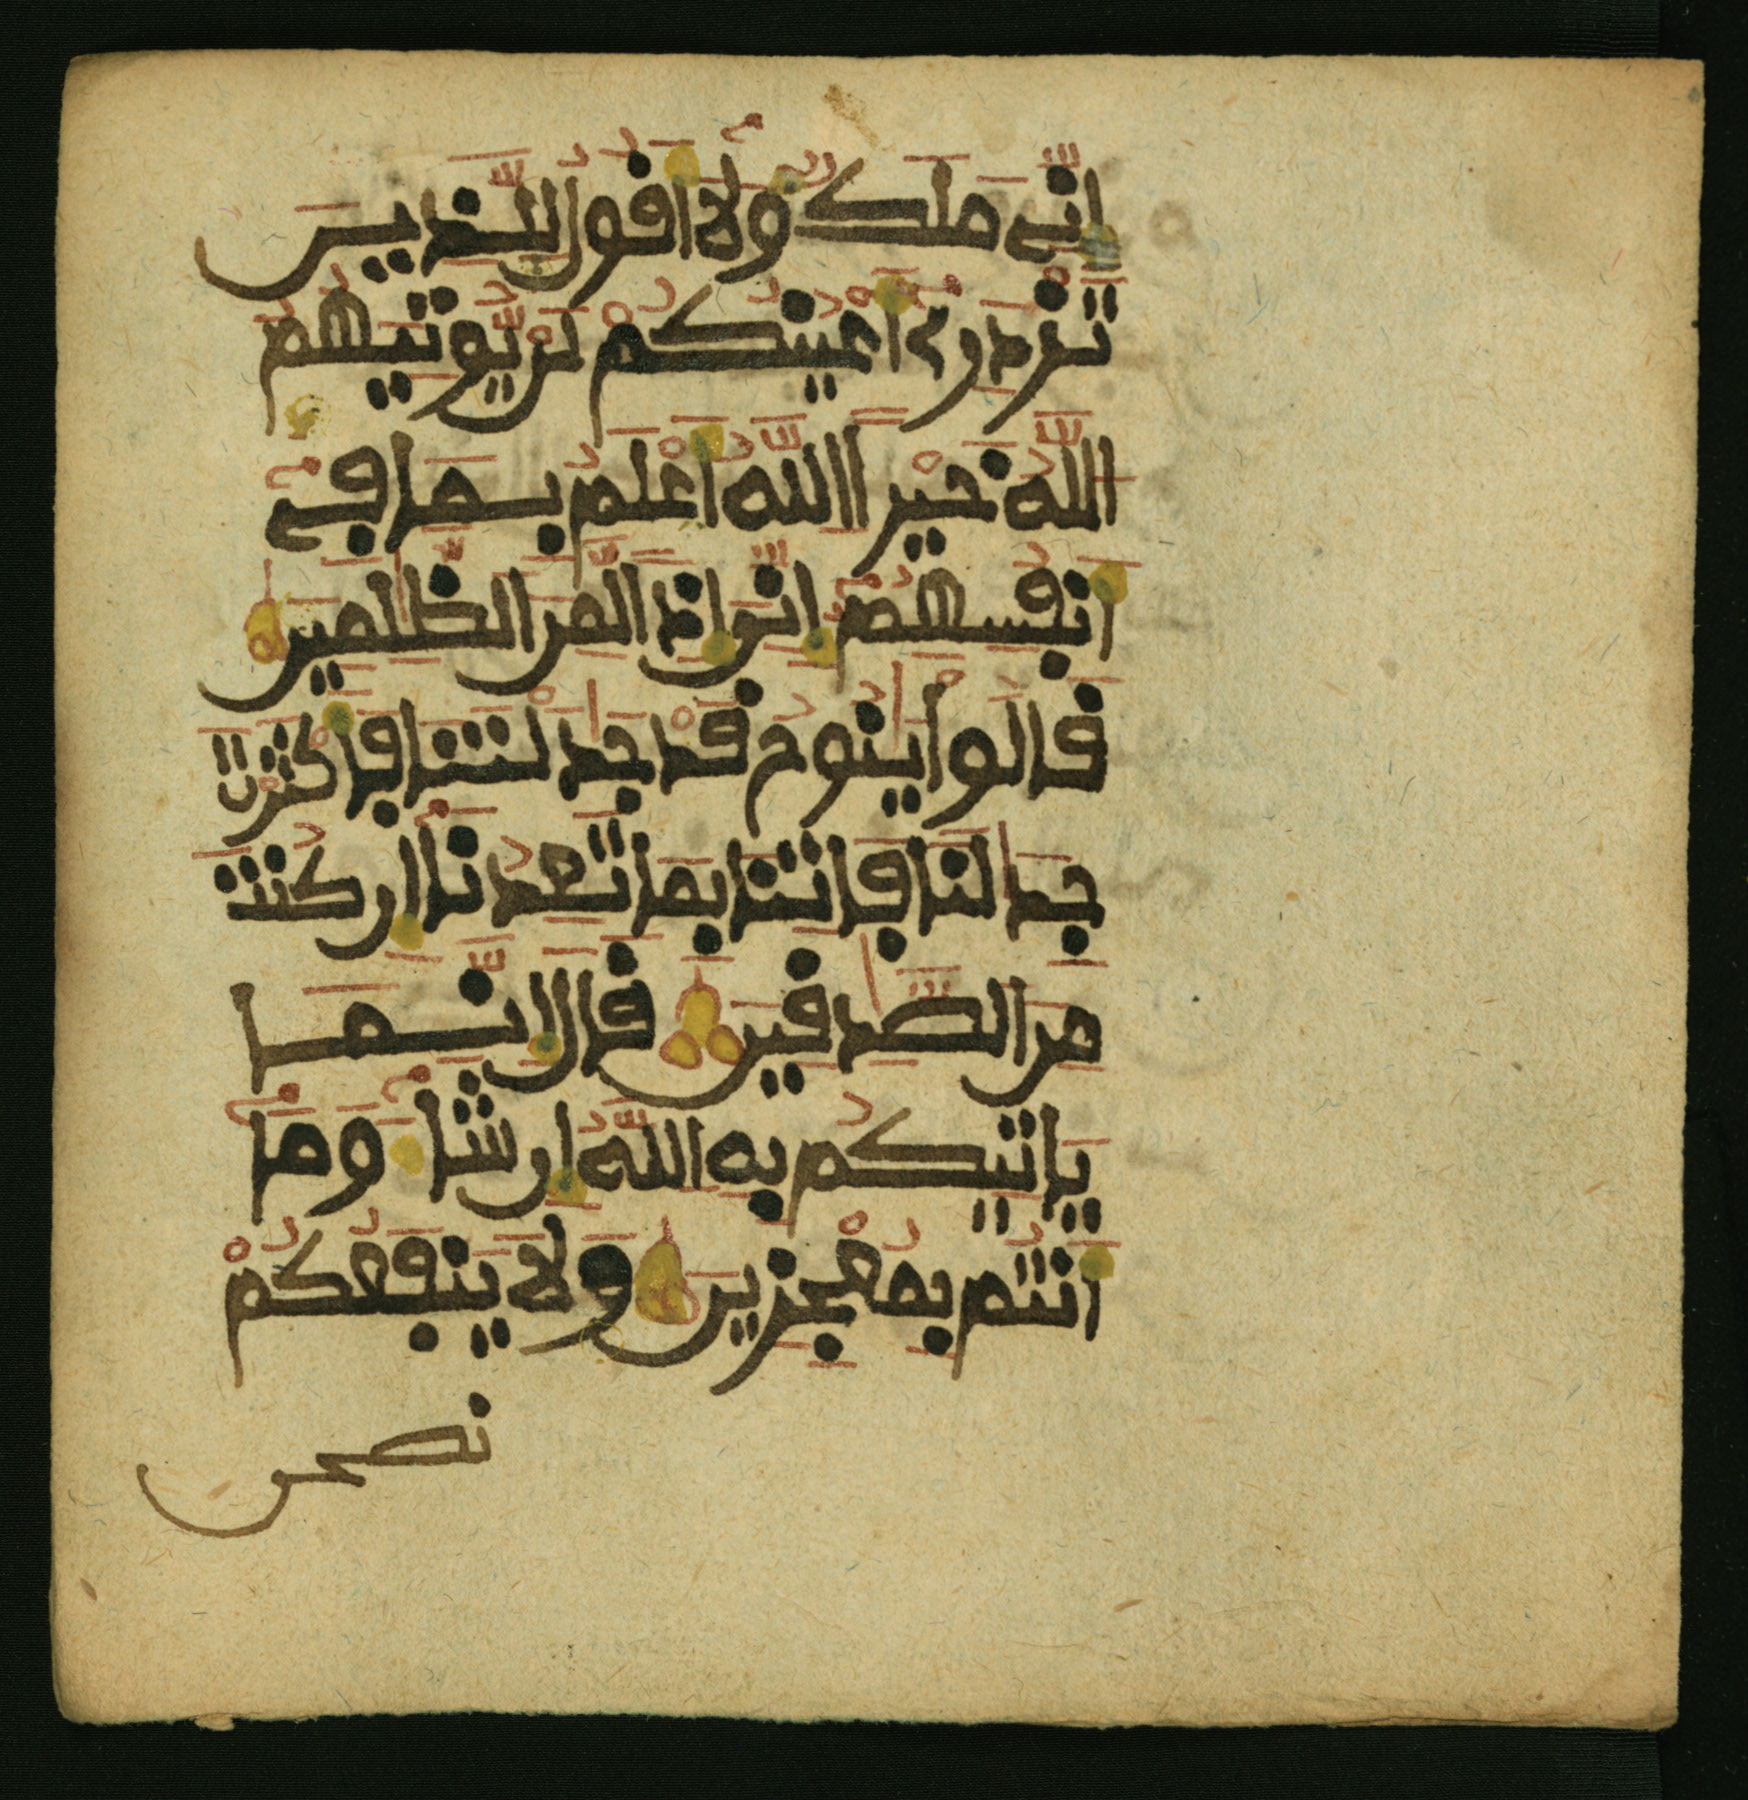 إِنِّے مَلَكٌ وَلَا أَقُولُ لِلَّذِينَ
تَزْدَرِے أَعْيُنُكُمْ لَنْ يُّوتِيَهُمُ
اللَّهُ خَيْراً اللَّهُ أَعْلَمُ بِمَا فِے
أَنفُسِهِمْ إِنِّيَ إِذاً لَّمِنَ الظَّٰلِمِينَ
قَالُواْ يَٰنُوحُ قَدْ جَٰدَلْتَنَا فَأَكْثَرْتَ
جِدَٰلَنَا فَاتِنَا بِمَا تَعِدُنَا إِن كُنتَ
مِنَ الصَّٰدِقِينَ قَالَ إِنَّمَا
يَاتِيكُم بِهِ اللَّهُ إِن شَآءَ وَمَا
أَنتُم بِمُعْجِزِينَ وَلَا يَنفَعُكُمْ
نصحى